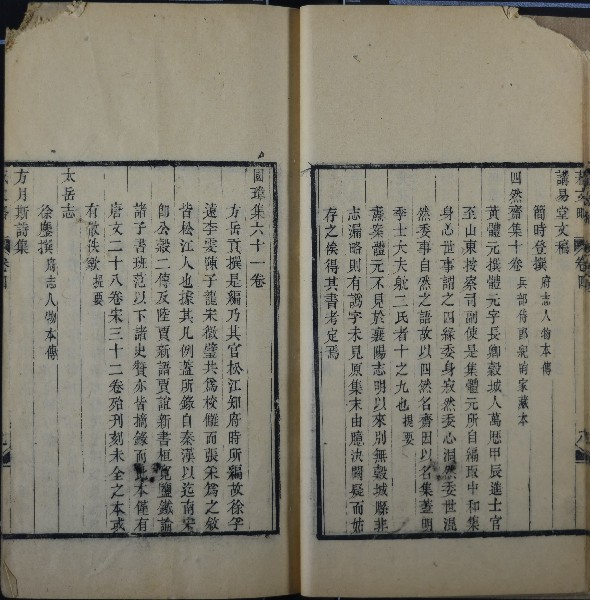 講易堂文稿
簡時登撰 府志人物本傳
四然齋集十卷 兵部侍郎紀昀家藏本
黃體元撰體元字長卿穀城人萬歷甲辰進士官
至山東按察司副使是集體元所自編取中和集
身心世事謂之四緣委身寂然委心洞然委世混
然委事自然之語故以四然名齋因以名集蓋明
季士大夫躭二氏者十之九也 提要
元不見於襄陽志明以來別無穀城縣非
志漏略則有譌字未見原集末由臆決闕疑而姑
存之俟得其書考定焉
國瑋集六十一卷
方岳貢撰是編乃其官松江知府時所編故徐孚
遠李雯陳子龍宋徵璧共爲校讎而張寀爲之敘
皆松江人也據其凡例蓋所錄自秦漢以迄南宋
師公穀二傳及陸賈新語賈誼新書桓寬鹽鐵論
諸子書班范以下諸史贊亦皆摘錄而此本僅有
唐文二十八卷宋三十二卷殆刊刻未全之本或
有散佚歟 提要
太岳志
徐學撰 府志人物本傳
方月斯詩集